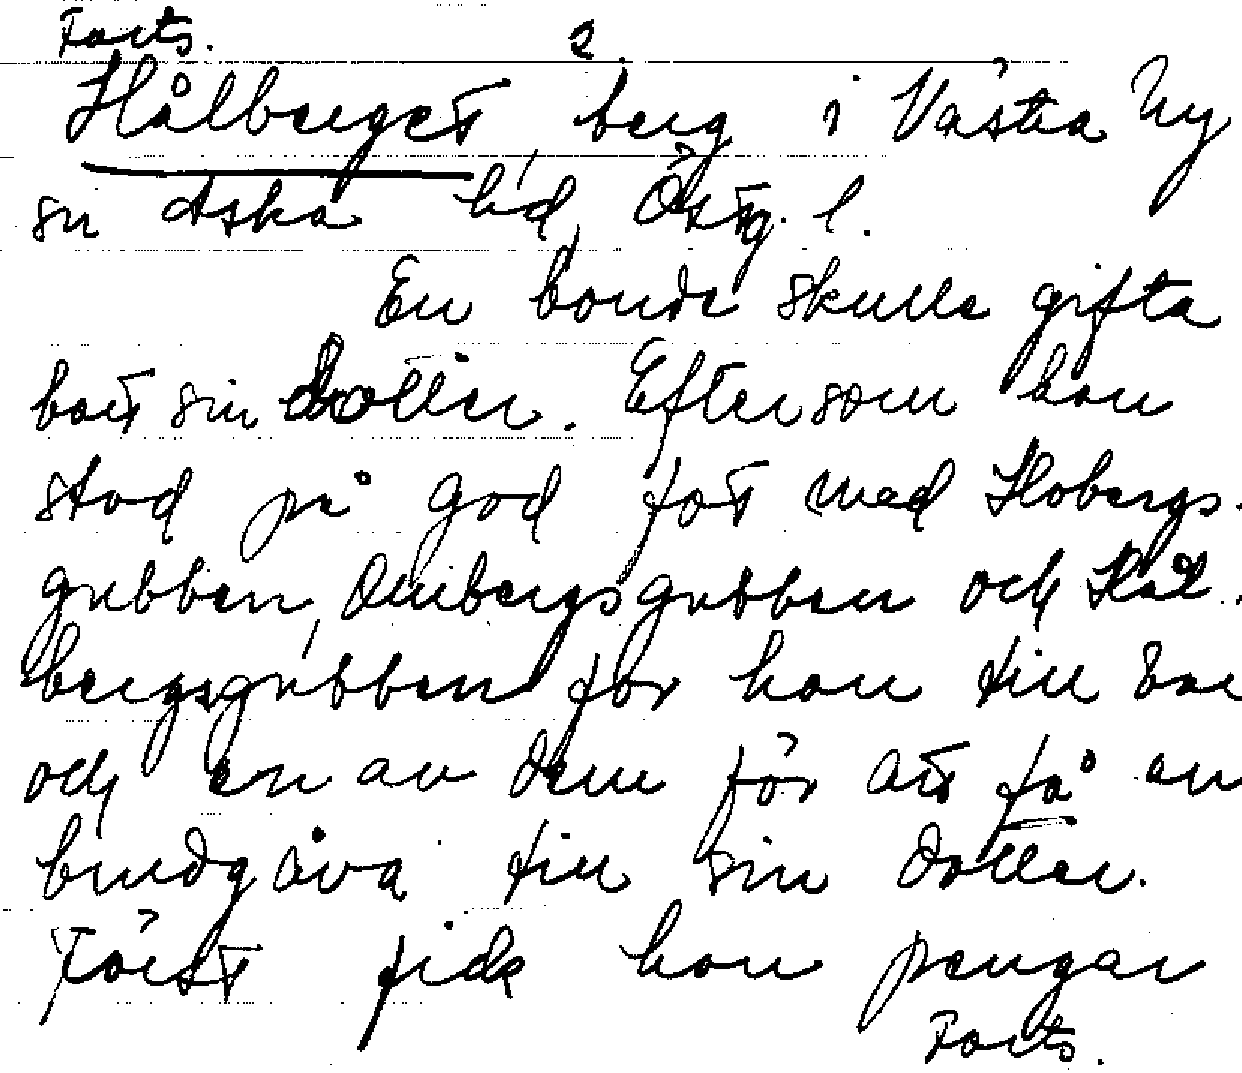 Forts. 2.
Hålberget, berg i Västra Ny
sn Aska hd, Östg. l.
En bonde skulle gifta
bort sin dotter. Eftersom han
stod på god fot med Hobergs-
gubben, Ombergsgubben och Hål-
bergsgubben for han till var
och en av dem för att få en
brudgåva till sin dotter.
Först fick han pengar
Forts.